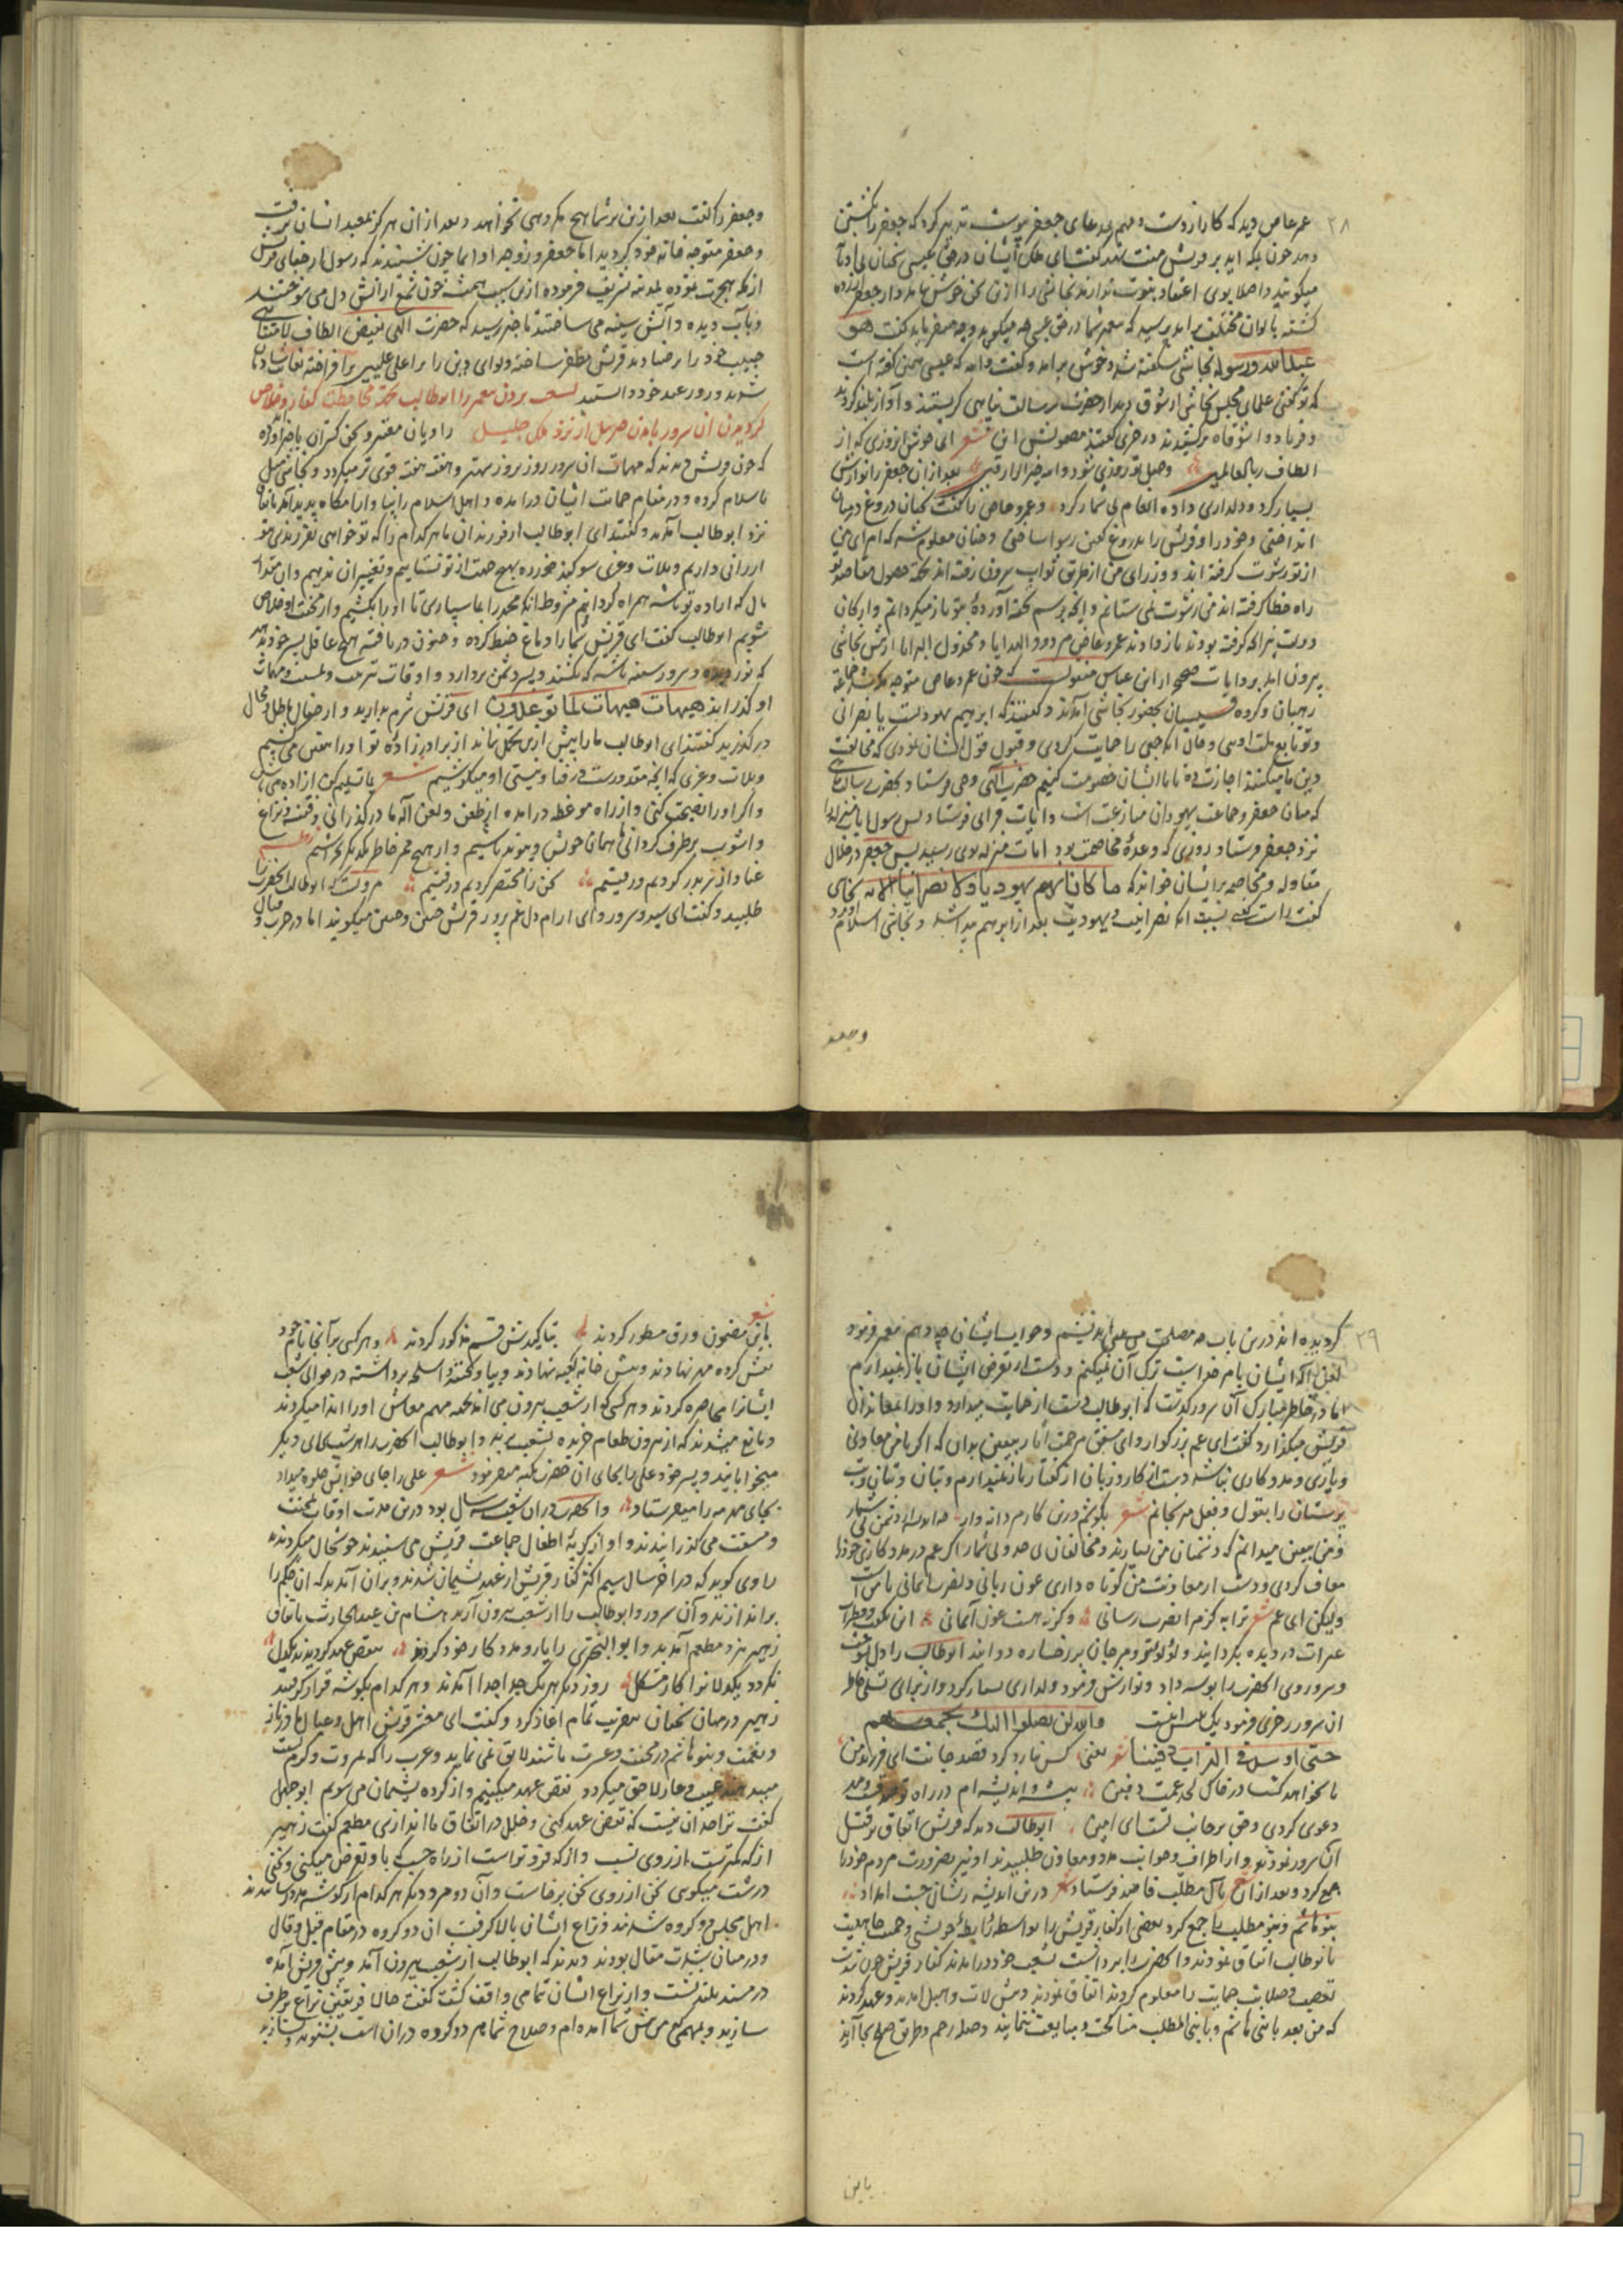 ۲۸
عمرعاص دید که کار از دست و مهم بمدعای جعفر پیوست تدبیر کرد که جعفر را بکشتن
دهد چون بلکه این بر قریش منت نهد گفت ای ملک ایشان در حق عیسی سخنان
میگویند و اصلا بوی اعتقاد بنوت ندارند نجاشی را ازین سخن خوش نیامد و از جعفر
گشته بالوان مختلف برآمد پرسید که پیغمبر شما در حق عیسی چه میگوید و چه میفرماید گفت هو
عبدالله ورسوله نجاشی شکفته شد و خوش برآمد و گفت والله که عیسی همین گفته است
که تو گفتی علمای مجلس نجاشی از شوق دیدار حضرت رسالت پناهی گریستند و آواز بلند کردند
و فریاد وا شوقاه برکشیدند در خری گفتند مضمونش این شعر ای خوش آنروزی که از
الطاف رب العالمین وصل او روزی شود والله خیر الرازقین بعد از ان جعفر را نوازش
بسیار کرد و دلداری داده انعام بی شمار کرد و عمرو عاص را گفت سخنان دروغ در میان
انداختی و خود را و قریش را بدروغ گفتن رسوا ساختی و چنان معلوم شد که امرای من
از تو رشوت گرفته اند و وزرای من از طریق ثواب بیرون رفته اند بجهة حصول مقاصد تو
راه خطا گرفته اند من رشوت نمی ستانم و آنچه برسم تحفه آورده بتو باز میگردانم و ارکان
دولت نیز آنچه گرفته بودند باز دادند عمرو عاص مردود الهدایا و مخذول البرایا از پیش نجاشی
بیرون آمد بروایات صحیح از ابن عباس منقولست که چون عمرو عاص متوجه مکه شد جماعة
رهبان و گروه قسیسان بحضور نجاشی آمدند و گفتند که ابرهیم یهودیست یا نصرانی
و تو تابع ملت اوسی و حال آنکه جمعی را حمایت کردی و قبول قول ایشان نمودی که مخالفت
دین ما میکنند اجازت ده تا با ایشان خصومت کنیم حضرت الهی وحی فرستاد بحضرت رسالت پناهی
که میان جعفر و جماعت یهودان منازعت است و آیات قرآنی فرستاد پس رسول آیات منزله را
نزد جعفر فرستاد روزی که وعدهٔ مخاصمت بود آیات منزله بوی رسید پس جعفر در خلال
مقاوله و مخاصمه بر ایشان خواند که ما کان ابرهیم یهودیا ولا نصرانیا الآیه نجاشی
گفت راست گفتی نسبت آنکه نصرانیت و یهودیت بعد از ابرهیم پیدا شد و نجاشی اسلام آورد
وجعفر
وجعفر را گفت بعد ازین بر شما هیچ مکروهی نخواهد و بعد از ان هرگز بمعبد انسان نرفت
وجعفر متوجه خانه خود گردید اما جعفر و زوجه او اسما چون شنیدند که رسول از جفای قریش
از مکه هجرت نموده بمدینه تشریف فرموده ازین سبب همیشه چون شمع از آتش دل می سوختند
و بآب دیده و آتش سینه می ساختند تا خبر رسید که حضرت الهی بفیض الطاف لامتناهی
حبیب خود را بر ضنادید قریش مظفر ساخته و لوای دین را بر اعلی علیین برافراخته بغایت شادمان
شدند و روز عید خود دانستند لسعب بردن پیغمبر را ابوطالب بجهة محافظت کفار و خلاص
گردیدن آن سرور بآمدن جبرئیل از نزد ملک جلیل راویان معتبر و سخن گستران باخبر آورده
که چون قریش دیدند که مهمات آن سرور روز بروز بهتر و هفته هفته قوی تر میگردد و نجاشی میل
باسلام کرده و در مقام حمایت ایشان درآمده و اهل اسلام را پناه و آرامگاه پدید آمد باتفاق
نزد ابوطالب آمدند و گفتند ای ابوطالب از فرزندان ما هر کدام را که تو خواهی بفرزندی بتو
ارزانی داریم و بلات و عزی سوگند خورده بهیچ جهت از تو نستانیم و تغییران ندهیم و ان مقدار
مال که اراده تو باشد همراه گردانیم مشروط آنکه محمد را بما سپاری تا او را بکشیم و از محنت او خلاص
شویم ابوطالب گفت ای قریش شما را دماغ خبط کرده و جنون دریافته هیچ عاقل پسر خود بدهد
که نور دیده و سرور سینه باشد که بکشند و پسر دشمن بردارد و اوقات بتربیت و تمشیت مهمات
او گذراند هیهات هیهات لما توعدون ای قریش شرم بدارید و از خیال باطل و محال
درگذرید گفتند ای ابوطالب ما را بیش ازین تحمل نماند از برادرزاده تو او را بعقل می کشیم
و بلات و عزی که آنچه مقدورست در فنا و نیستی او میکوشیم شعر یا تسلیم کن از اده می باش
و اگر او را نصیحت کنی و از راه موعظه درآمده از طعن و لعن آلهه ما درگذرانی وقتی نزاع
و آشوب برطرف گردانی ما همان خویش و پیوند باشیم و از هیچ ممر خاطر یکدیگر نخراشیم نظم
عناد از سر بدر کردیم و رفتیم سخن را مختصر کردیم و رفتیم مرویست که ابوطالب آنحضرت را
طلبید و گفت ای سید و سرور و ای آرام دل غم پرور قریش چنین و چنین میگویند اما در حرب و قتال
۲۹
گردیده اند درین باب چه مصلحت می بینی اندیشم و جواب ایشان چه دهم پیغمبر فرمود
یعنی آنکه ایشان بامر خداست ترک آن نمیکنم و دست از تعرض ایشان باز نمیدارم
اما در خاطر مبارک آن سرور گذشت که ابوطالب دست از حمایت میدارد و او را بمعاندان
قریش میگذارد گفت ای عم بزرگوار و ای مشفق مرحمت آثار بیقین بدان که اگر با من معاونی
و یاری و مددکاری نباشد دست از کار و زبان از گفتار باز نمیدارم و بتان و بت
پرستان را بقول و فعل می رنجانم شعر بکوشم درین کارم دانه وار چه اندیشه دشمن بی شمار
و من بیقین میدانم که دشمنان من بسیارند و مخالفان بیحد و بی شمار اگر عم در مددکاری خود را
معاف کردی و دست از معاونت من کوتاه داری عون ربانی و نصرت آسمانی با من است
ولیکن ای عم شعر ترا به گرم نصرت رسانی وگرنه هست عون آسمانی این بگفت و قطرات
عبرات در دیده بگردانید و لؤلؤ تر و مرجان بر رخساره دوانید ابوطالب را دل بسوخت
و سر و روی آنحضرت را بوسه داد و نوازش فرمود و دلداری بسیار کرد و از برای تسلی خاطر
آن سرور رجزی فرمود یک بیتش اینست والله لن یصلوا الیک بجمعهم
حتی اوسد فی التراب دفینا شعر یعنی کس نیارد کرد قصد جانت ای فرزند من
تا نخواهد گشت در خاک لحد عمت دفین بیشه و اندیشه ام در راه تو صدقست و مدد
دعوی کردی و حق بر جانب تست ای امین ابوطالب دید که قریش اتفاق بر قتل
آن سرور نمودند و از اطراف و جوانب مدد و معاون طلبیدند او نیز بضرورت مردم خود را
جمع کرد و بعد از ان بآل مطلب قاصد فرستاد شعر درین اندیشه زیشان جست امداد
بنوهاشم و بنومطلب را جمع کرد بعضی از کفار قریش را بواسطه رابطهٔ خویشی و حمیت جاهلیت
با ابوطالب اتفاق نمودند و آنحضرت را برداشته بشعب خود درآمدند کفار قریش چون شدت
تعصب و صلابت حمایت را معلوم کردند اتفاق نمودند و پیش لات و هبل آمدند و عهد کردند
که من بعد با بنی هاشم و با بنی المطلب مناکحت و مبایعت ننمایند و صله رحم و طریق صلح بجا آرند
باین
شعر
باین مضمون ورق مسطور کردند بتأکیدش قسم مذکور کردند و هر کس بر آنجا نام خود
نقش کرده مهر نهادند و بسقف خانه کعبه نهادند و بیاویختند و اسلحه برداشته در حوالی شعب
ایشانرا محاصره کردند و هر کس که از شعب بیرون می آمد بجهة مهم معاش او را ایذا میکردند
و مانع میشدند که از بیرون طعام خریده بشعب برند و ابوطالب آنحضرت را هر شب جای دیگر
میخوابانید و پسر خود علی را بجای آن حضرت تکیه میفرمود شعر علی را جای خوابش جلوه میداد
بجای مهر مه را میفرستاد و آنحضرت در ان شعب سه سال بود درین مدت اوقات بمحنت
و مشقت می گذرانیدند و آواز گریه اطفال جماعت قریش می شنیدند خوشحال میگردیدند
راوی گوید که در آخر سال سیم اکثر کفار قریش از عهد پشیمان شدند و بر آن آمدند که آن حکم را
براندازند و آن سرور و ابوطالب را از شعب بیرون آرند هشام بن عبدالحارث باتفاق
زهیر نزد مطعم آمدند و ابوالبختری را یار و مددکار خود کردند بنقض عهد گردیدند یکدل
نگردد یکدلانرا کار مشکل روز دیگر هر یک جدا جدا آمدند و هر کدام بگوشه قرار گرفتند
زهیر در میان سخنان بتقریب تمام آغاز کرد و گفت ای معشر قریش اهل و عیال ما در ناز
و نعمت و بنوهاشم در محنت و عسرت باشند لایق نمی نماید و عرب را که بمروت و کرم نسبت
میدهند عیب و عار لاحق میگردد نقض عهد میکنیم و از کرده پشیمان می شویم ابوجهل
گفت ترا حد آن نیست که نقض عهد کنی و خلل در اتفاق ما اندازی مطعم گفت زهیر
از که کمترست از روی نسب و از که فروترست از راه حسب که با او تعرض میکنی و سخن
درشت میگویی سخن از روی سخن برخاست و آن دو مرد دیگر هر کدام از گوشه مدد رسانیدند
اهل مجلس دو گروه شدند و نزاع ایشان بالا گرفت آن دو گروه در مقام قیل و قال
و در میان بشدت مقال بودند دیدند که ابوطالب از شعب بیرون آمد و پیش قریش آمده
در مسند بلند نشست و از نزاع ایشان تمامی واقف گشت گفت حالا فریقین نزاع برطرف
سازید و بمهمی که من پیش شما آمده ام و صلاح شما هر دو گروه در ان است بشنوید و بسازید